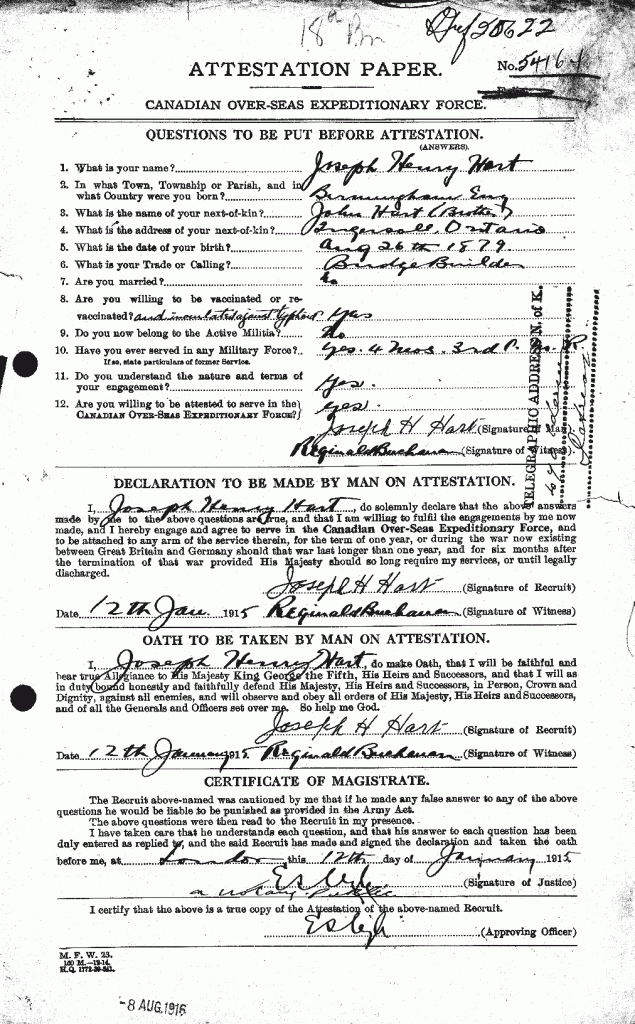 18th Bn
ATTESTATION PAPER.
No. 54164
CANADIAN OVER-SEAS EXPEDITIONARY FORCE.
QUESTIONS TO BE PUT BEFORE ATTESTATION.
(ANSWERS).
1. What is your name? Joseph Henry Hart
2. In what Town, Township or Parish, and in
what Country were you born? Birmingham Eng
3. What is the name of your next-of-kin? John Hart (Brother)
4. What is the address of your next-of-kin? Ingersoll, Ontario
5. What is the date of your birth? Aug 26th 1879.
6. What is your Trade or Calling? Bridge Builder
7. Are you married? No
8. Are you willing to be vaccinated or re-
vaccinated? and inoculated against Typhoid Yes
9. Do you now belong to the Active Militia? No
10. Have you ever served in any Military Force? Yes. 4 Mos. 3rd
If so, state particulars of former Service.
11. Do you understand the nature and terms of
your engagement? Yes.
12. Are you willing to be attested to serve in the
CANADIAN OVER-SEAS EXPEDITIONARY FORCE? Yes.
Joseph H Hart (Signature of Man).
Reginald Buchanan (Signature of Witness).
TELEGRAPHIC ADDRESS N. of K.
DECLARATION TO BE MADE BY MAN ON ATTESTATION.
I, Joseph Henry Hart, do solemnly declare that the above answers
made by me to the above questions are true, and that I am willing to fulfil the engagements by me now
made, and I hereby engage and agree to serve in the Canadian Over-Seas Expeditionary Force, and
to be attached to any arm of the service therein, for the term of one year, or during the war now existing
between Great Britain and Germany should that war last longer than one year, and for six months after
the termination of that war provided His Majesty should so long require my services, or until legally
discharged.
Joseph H Hart (Signature of Recruit)
Date 12th Jan. 1915 Reginald Buchanan (Signature of Witness)
OATH TO BE TAKEN BY MAN ON ATTESTATION.
I, Joseph Henry Hart, do make Oath, that I will be faithful and
bear true Allegiance to His Majesty King George the Fifth, His Heirs and Successors, and that I will as
in duty bound honestly and faithfully defend His Majesty, His Heirs and Successors, in Person, Crown and
Dignity, against all enemies, and will observe and obey all orders of His Majesty, His Heirs and Successors,
and of all the Generals and Officers set over me. So help me God.
Joseph H Hart (Signature of Recruit)
Date 12th January 1915 Reginald Buchanan (Signature of Witness)
CERTIFICATE OF MAGISTRATE.
The Recruit above-named was cautioned by me that if he made any false answer to any of the above
questions he would be liable to be punished as provided in the Army Act.
The above questions were then read to the Recruit in my presence.
I have taken care that he understands each question, and that his answer to each question has been
duly entered as replied to, and the said Recruit has made and signed the declaration and taken the oath
before me, at London this 12th day of January 1915
(Signature of Justice)
a notary Public
I certify that the above is a true copy of the Attestation of the above-named Recruit.
(Approving Officer)
M. F. W. 23.
-8 AUG. 1916